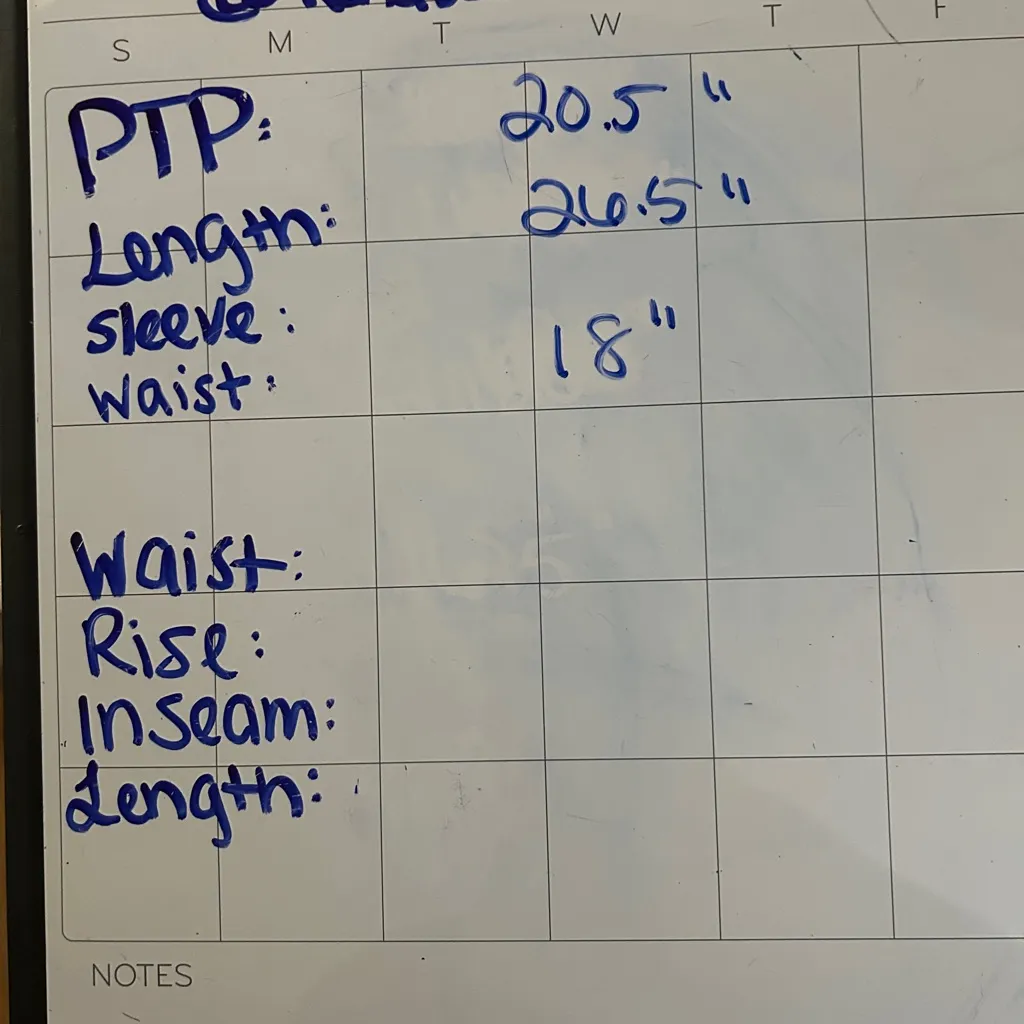 S M T W T F
PTP: 20.5 "
Length: 26.5 "
Sleeve: 18 "
Waist:
Waist:
Rise:
Inseam:
Length:
NOTES